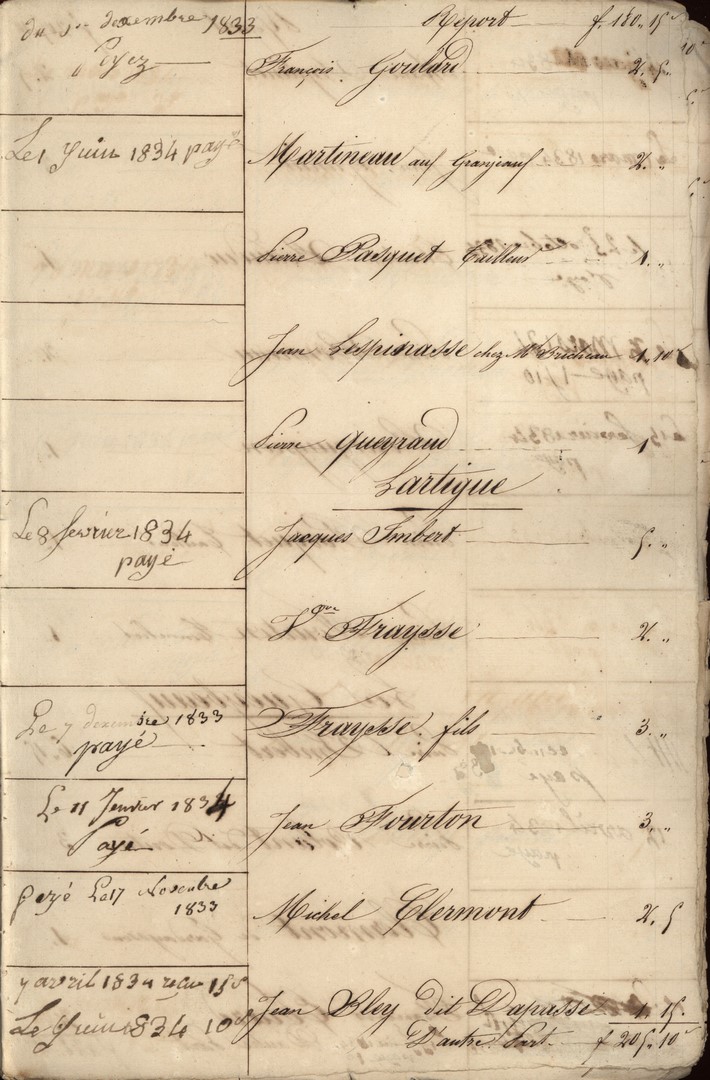 du 1er decembre 1833 Report f. 180 15
Payez François Goulard 2. 5 "
Le 1 Juin 1834 payé Martineau auf Granjeauf 2. "
Pierre Pasquet tailleur 1. "
Jean Lespinasse chez Mr Bricheau 1. 10
Pierre Queyraud 1
Lartigue
Le 8 fevrier 1834 Jacques Imbert 5. "
payé
Vve Fraysse 2. "
Le 7 decembre 1833 Fraysse fils 3. "
payé
Le 11 Jenvier 1834 Jean Fourton 3. "
Payé
peyé Le 17 Novenbre Michel Clermont 2. 5
1833
7 avril 1834 recu 15s Jean Bley dit Dapasse 1. 15.
Le Juin 1834 10s D'autre Part f 205. 10